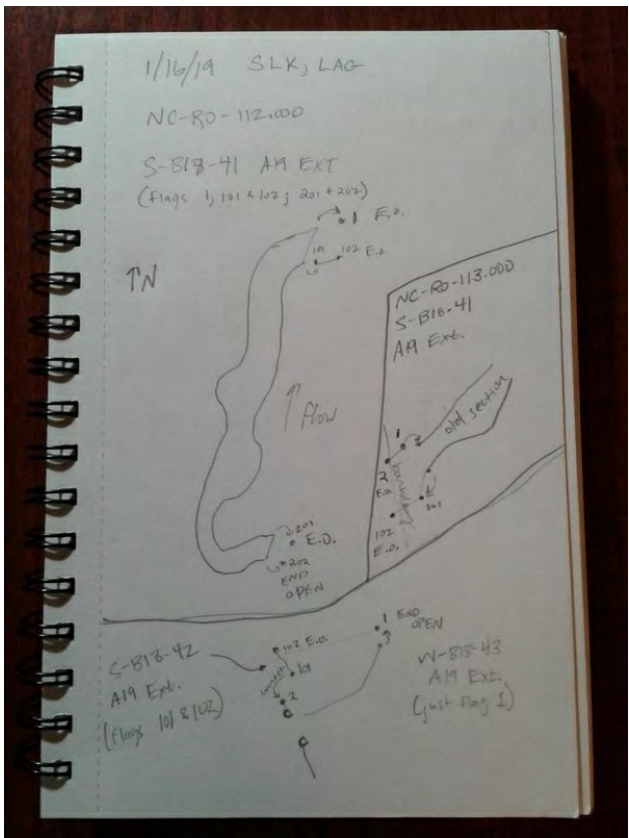 1/16/19 SLK, LAG
NC-RO-112.000
S-B18-41 A19 EXT
(flags 1, 101 & 102; 201 + 202)
1 E.O.
101 102 E.O.
↑N
↑ flow
201
E.O.
202
END
OPEN
NC-RO-113.000
S-B18-41
A19 Ext.
old section
1
2
E.O.
boundary
101
102
E.O.
S-B18-42
A19 Ext.
(flags 101 & 102)
102 E.O.
101
connect
2
1 END
OPEN
W-B18-43
A19 Ext.
(just flag 1)